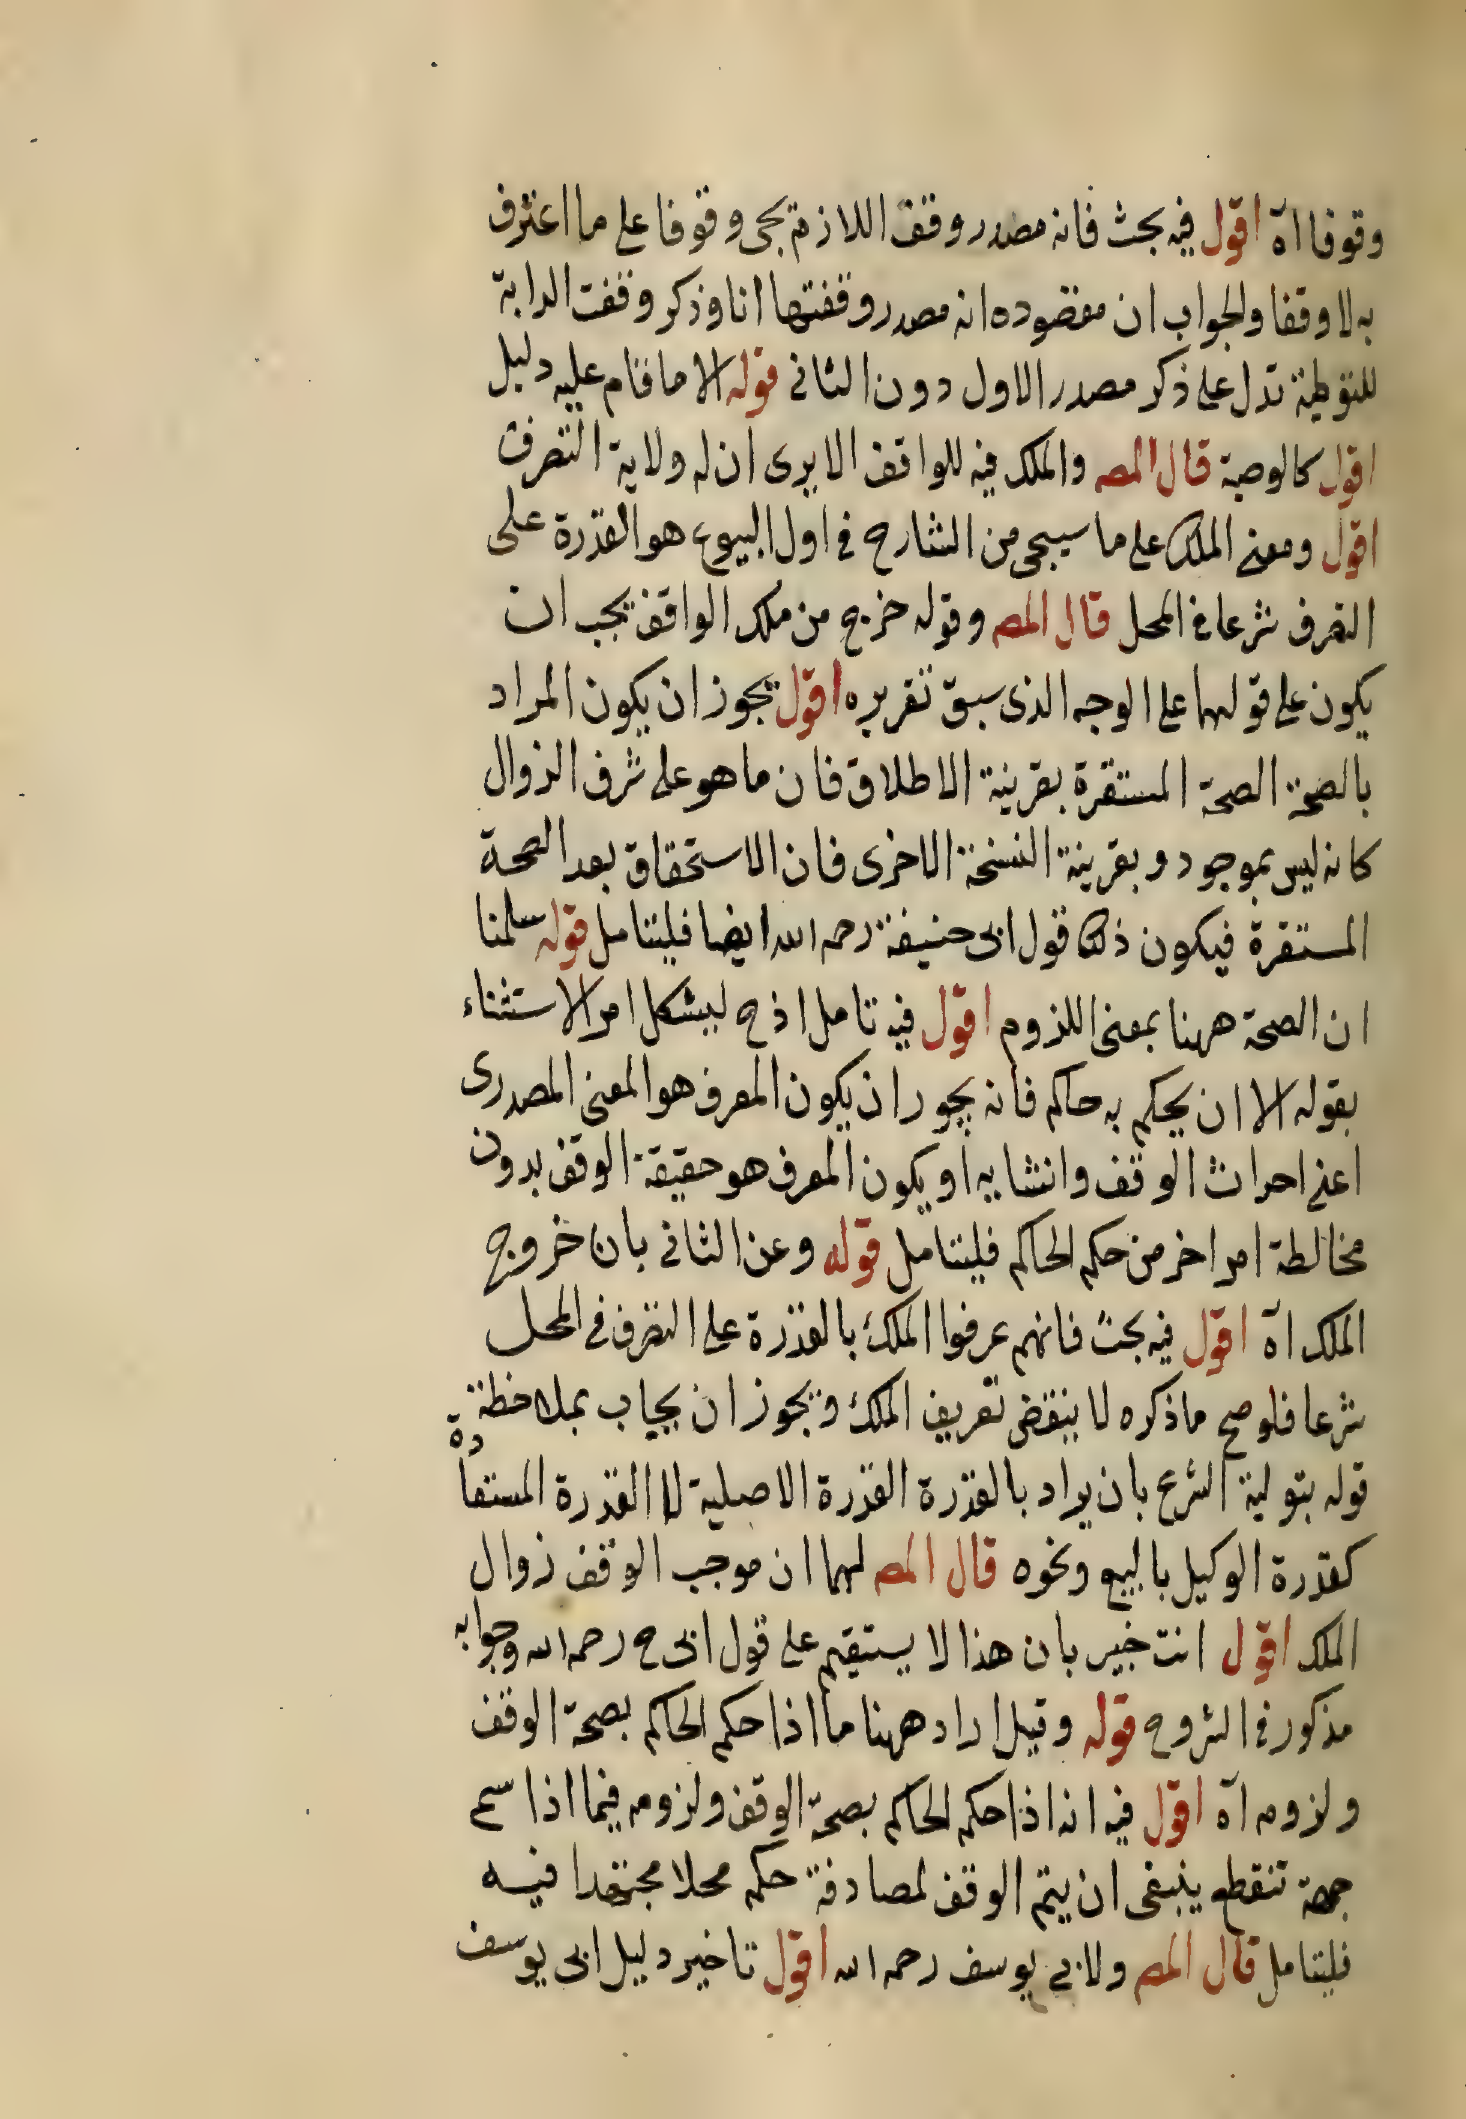 وقوفا اه اقول فيه بحث فانه مصدر وقف اللازم يجى وقوفا على ما اعترف
به لا وقفا والجواب ان مقصوده انه مصدر وقفتها انا وذكر وقفت الدابة
للتوطية تدل على ذكر مصدر الاول دون الثانى قوله الا ما قام عليه دليل
اقول كالوصية قال المص والملك فيه للواقف الا يرى ان له ولاية التصرف
اقول ومعنى الملك على ما سيجى من الشارح فى اول البيوع هو القدرة على
التصرف شرعا فى المحل قال المص وقوله خرج من ملك الواقف يجب ان
يكون على قولهما على الوجه الذى سبق تقريره اقول يجوز ان يكون المراد
بالصحة الصحة المستقرة بقرينة الاطلاق فان ما هو على شرف الزوال
كانه ليس بموجود وبقرينة النسخة الاخرى فان الاستحقاق بعد الصحة
المستقرة فيكون ذلك قول ابى حنيفة رحمه الله ايضا فليتامل قوله سلمنا
ان الصحة ههنا بمعنى اللزوم اقول فيه تامل اذ ح ليشكل امر الاستثناء
بقوله الا ان يحكم به حاكم فانه يجور ان يكون المعرف هو المعنى المصدرى
اعنى احداث الوقف وانشايه او يكون المعرف هو حقيقة الوقف بدون
مخالطة امر اخر من حكم الحاكم فليتامل قوله وعن الثانى بان خروج
الملك اه اقول فيه بحث فانهم عرفوا الملك بالقدرة على التصرف فى المحل
شرعا فلو صح ما ذكره لا ينقض تعريف الملك ويجوز ان يجاب بملاحظة
قوله بتولية الشرع بان يراد بالقدرة القدرة الاصلية لا القدرة المستفادة
كقدرة الوكيل بالبيع ونحوه قال المص لهما ان موجب الوقف زوال
الملك اقول انت خبير بان هذا لا يستقيم على قول ابى ح رحمه الله وجوابه
مذكور فى الشروح قوله وقيل اراد ههنا ما اذا حكم الحاكم بصحة الوقف
ولزومه اه اقول فيه انه اذا حكم الحاكم بصحة الوقف ولزومه فيما اذا سم
جهة تنقطع ينبغى ان يتم الوقف لمصادفة حكمه محلا مجتهدا فيه
فليتامل قال المص ولابى يوسف رحمه الله اقول تاخير دليل ابى يوسف